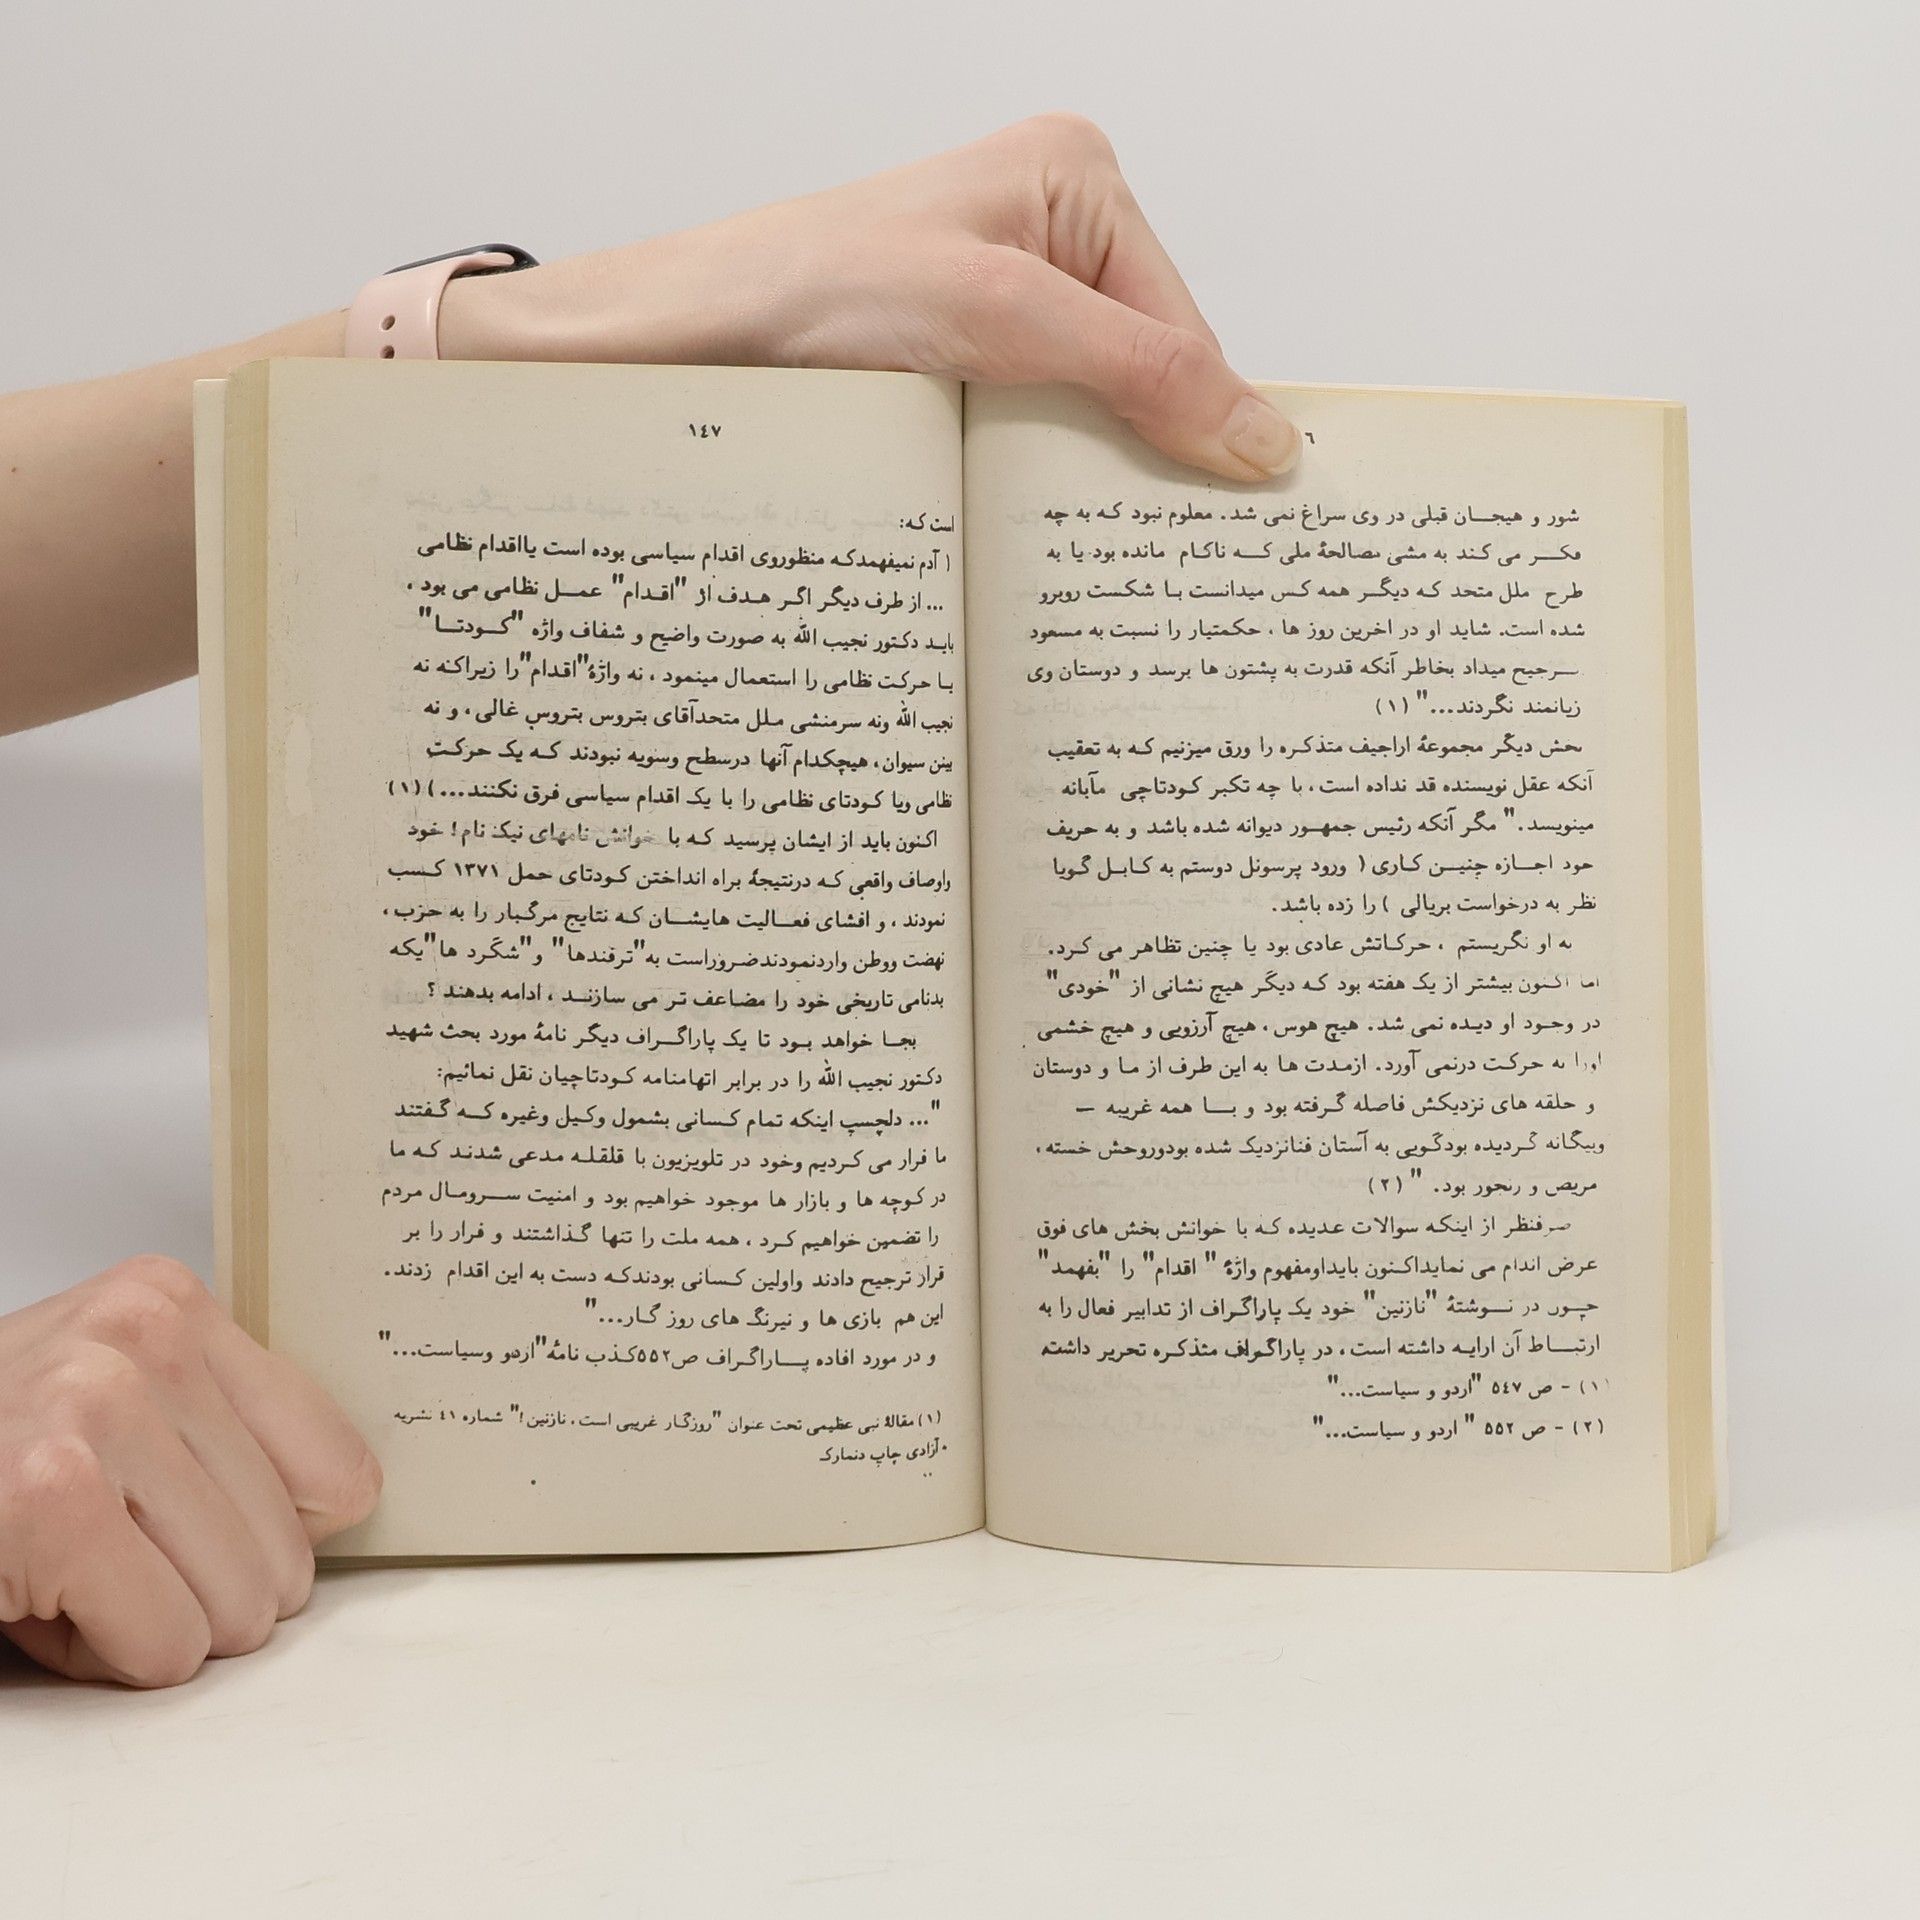 ٦
شور و هیجان قبلی در وی سراغ نمی شد. معلوم نبود که به چه
فکر می کند به مشی مصالحهٔ ملی که ناکام مانده بود یا به
طرح ملل متحد که دیگر همه کس میدانست با شکست روبرو
شده است. شاید او در اخرین روز ها ، حکمتیار را نسبت به مسعود
ترجیح میداد بخاطر آنکه قدرت به پشتون ها برسد و دوستان وی
زیانمند نگردند..." (١)
بخش دیگر مجموعهٔ اراجیف متذکره را ورق میزنیم که به تعقیب
آنکه عقل نویسنده قد نداده است ، با چه تکبر کودتاچی مآبانه
مینویسد. " مگر آنکه رئیس جمهور دیوانه شده باشد و به حریف
خود اجازه چنین کاری ( ورود پرسونل دوستم به کابل گویا
نظر به درخواست بریالی ) را زده باشد.
به او نگریستم ، حرکاتش عادی بود یا چنین تظاهر می کرد.
اما اکنون بیشتر از یک هفته بود که دیگر هیچ نشانی از "خودی"
در وجود او دیده نمی شد. هیچ هوس ، هیچ آرزویی و هیچ خشمی
اورا به حرکت درنمی آورد. ازمدت ها به این طرف از ما و دوستان
و حلقه های نزدیکش فاصله گرفته بود و با همه غریبه –
وبیگانه گردیده بودگویی به آستان فنانزدیک شده بودوروحش خسته ،
مریض و رنجور بود. " (٢)
صرفنظر از اینکه سوالات عدیده که با خوانش بخش های فوق
عرض اندام می نمایداکنون بایداومفهوم واژهٔ " اقدام" را "بفهمد"
چون در نوشتهٔ "نازنین" خود یک پاراگراف از تدابیر فعال را به
ارتباط آن ارایه داشته است ، در پاراگراف متذکره تحریر داشته
١) - ص ٥٤٧ "اردو و سیاست..."
(٢) - ص ٥٥٢ " اردو و سیاست..."
١٤٧
است که:
( آدم نمیفهمدکه منظوروی اقدام سیاسی بوده است یااقدام نظامی
... از طرف دیگر اگر هدف از "اقدام" عمل نظامی می بود ،
باید دکتور نجیب الله به صورت واضیح و شفاف واژه "کودتا"
با حرکت نظامی را استعمال مینمود ، نه واژهٔ "اقدام"را زیراکه نه
نجیب الله ونه سرمنشی ملل متحدآقای بتروس بتروس غالی ، و نه
بینن سیوان ، هیچکدام آنها درسطح وسویه نبودند که یک حرکت
نظامی ویا کودتای نظامی را با یک اقدام سیاسی فرق نکنند...) (١)
اکنون باید از ایشان پرسید که با خوانش نامهای نیک نام! خود
واوصاف واقعی که درنتیجهٔ براه انداختن کودتای حمل ١٣٧١ کسب
نمودند ، و افشای فعالیت هایشان که نتایج مرگبار را به حزب ،
نهضت ووطن واردنمودندضروراست به"ترفندها" و"شگرد ها"یکه
بدنامی تاریخی خود را مضاعف تر می سازند ، ادامه بدهند ؟
بجا خواهد بود تا یک پاراگراف دیگر نامهٔ مورد بحث شهید
دکتور نجیب الله را در برابر اتهامنامه کودتاچیان نقل نمائیم:
"... دلچسپ اینکه تمام کسانی بشمول وکیل وغیره که گفتند
ما فرار می کردیم وخود در تلویزیون با قلقله مدعی شدند که ما
در کوچه ها و بازار ها موجود خواهیم بود و امنیت سرومال مردم
را تضمین خواهیم کرد ، همه ملت را تنها گذاشتند و فرار را بر
قرار ترجیح دادند واولین کسانی بودندکه دست به این اقدام زدند.
این هم بازی ها و نیرنگ های روز گار..."
و در مورد افاده پاراگراف ص٥٥٢کذب نامهٔ"اردو وسیاست..."
(١) مقالهٔ نبی عظیمی تحت عنوان "روزگار غریبی است ، نازنین!" شماره ٤١ نشریه
آزادی چاپ دنمارک